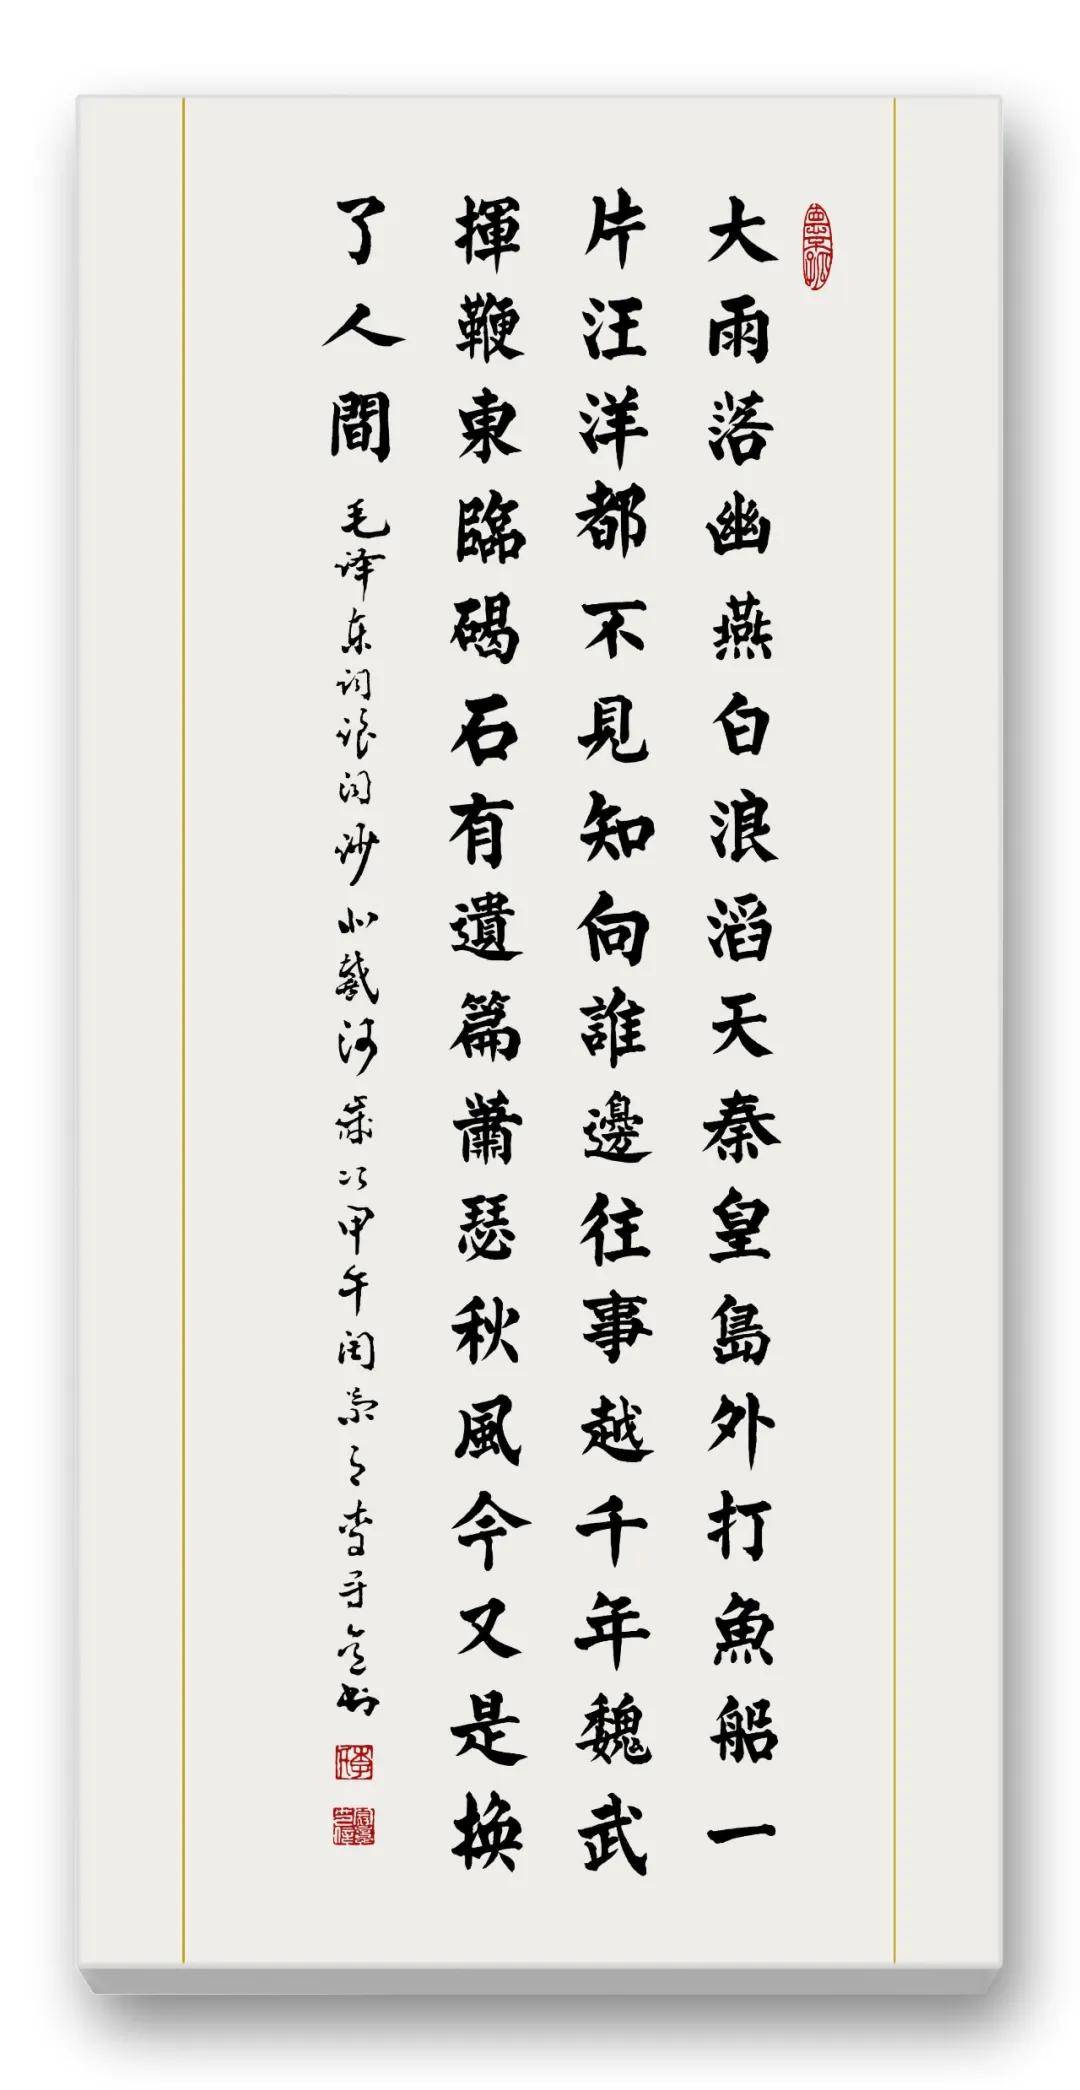 大雨落幽燕白浪滔天秦皇島外打魚船一
片汪洋都不見知向誰邊往事越千年魏武
揮鞭東臨碣石有遺篇蕭瑟秋風今又是換
了人間
毛泽东词浪淘沙北戴河歲次甲午